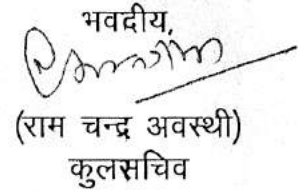 भवदीय,
(राम चन्द्र अवस्थी)
कुलसचिव